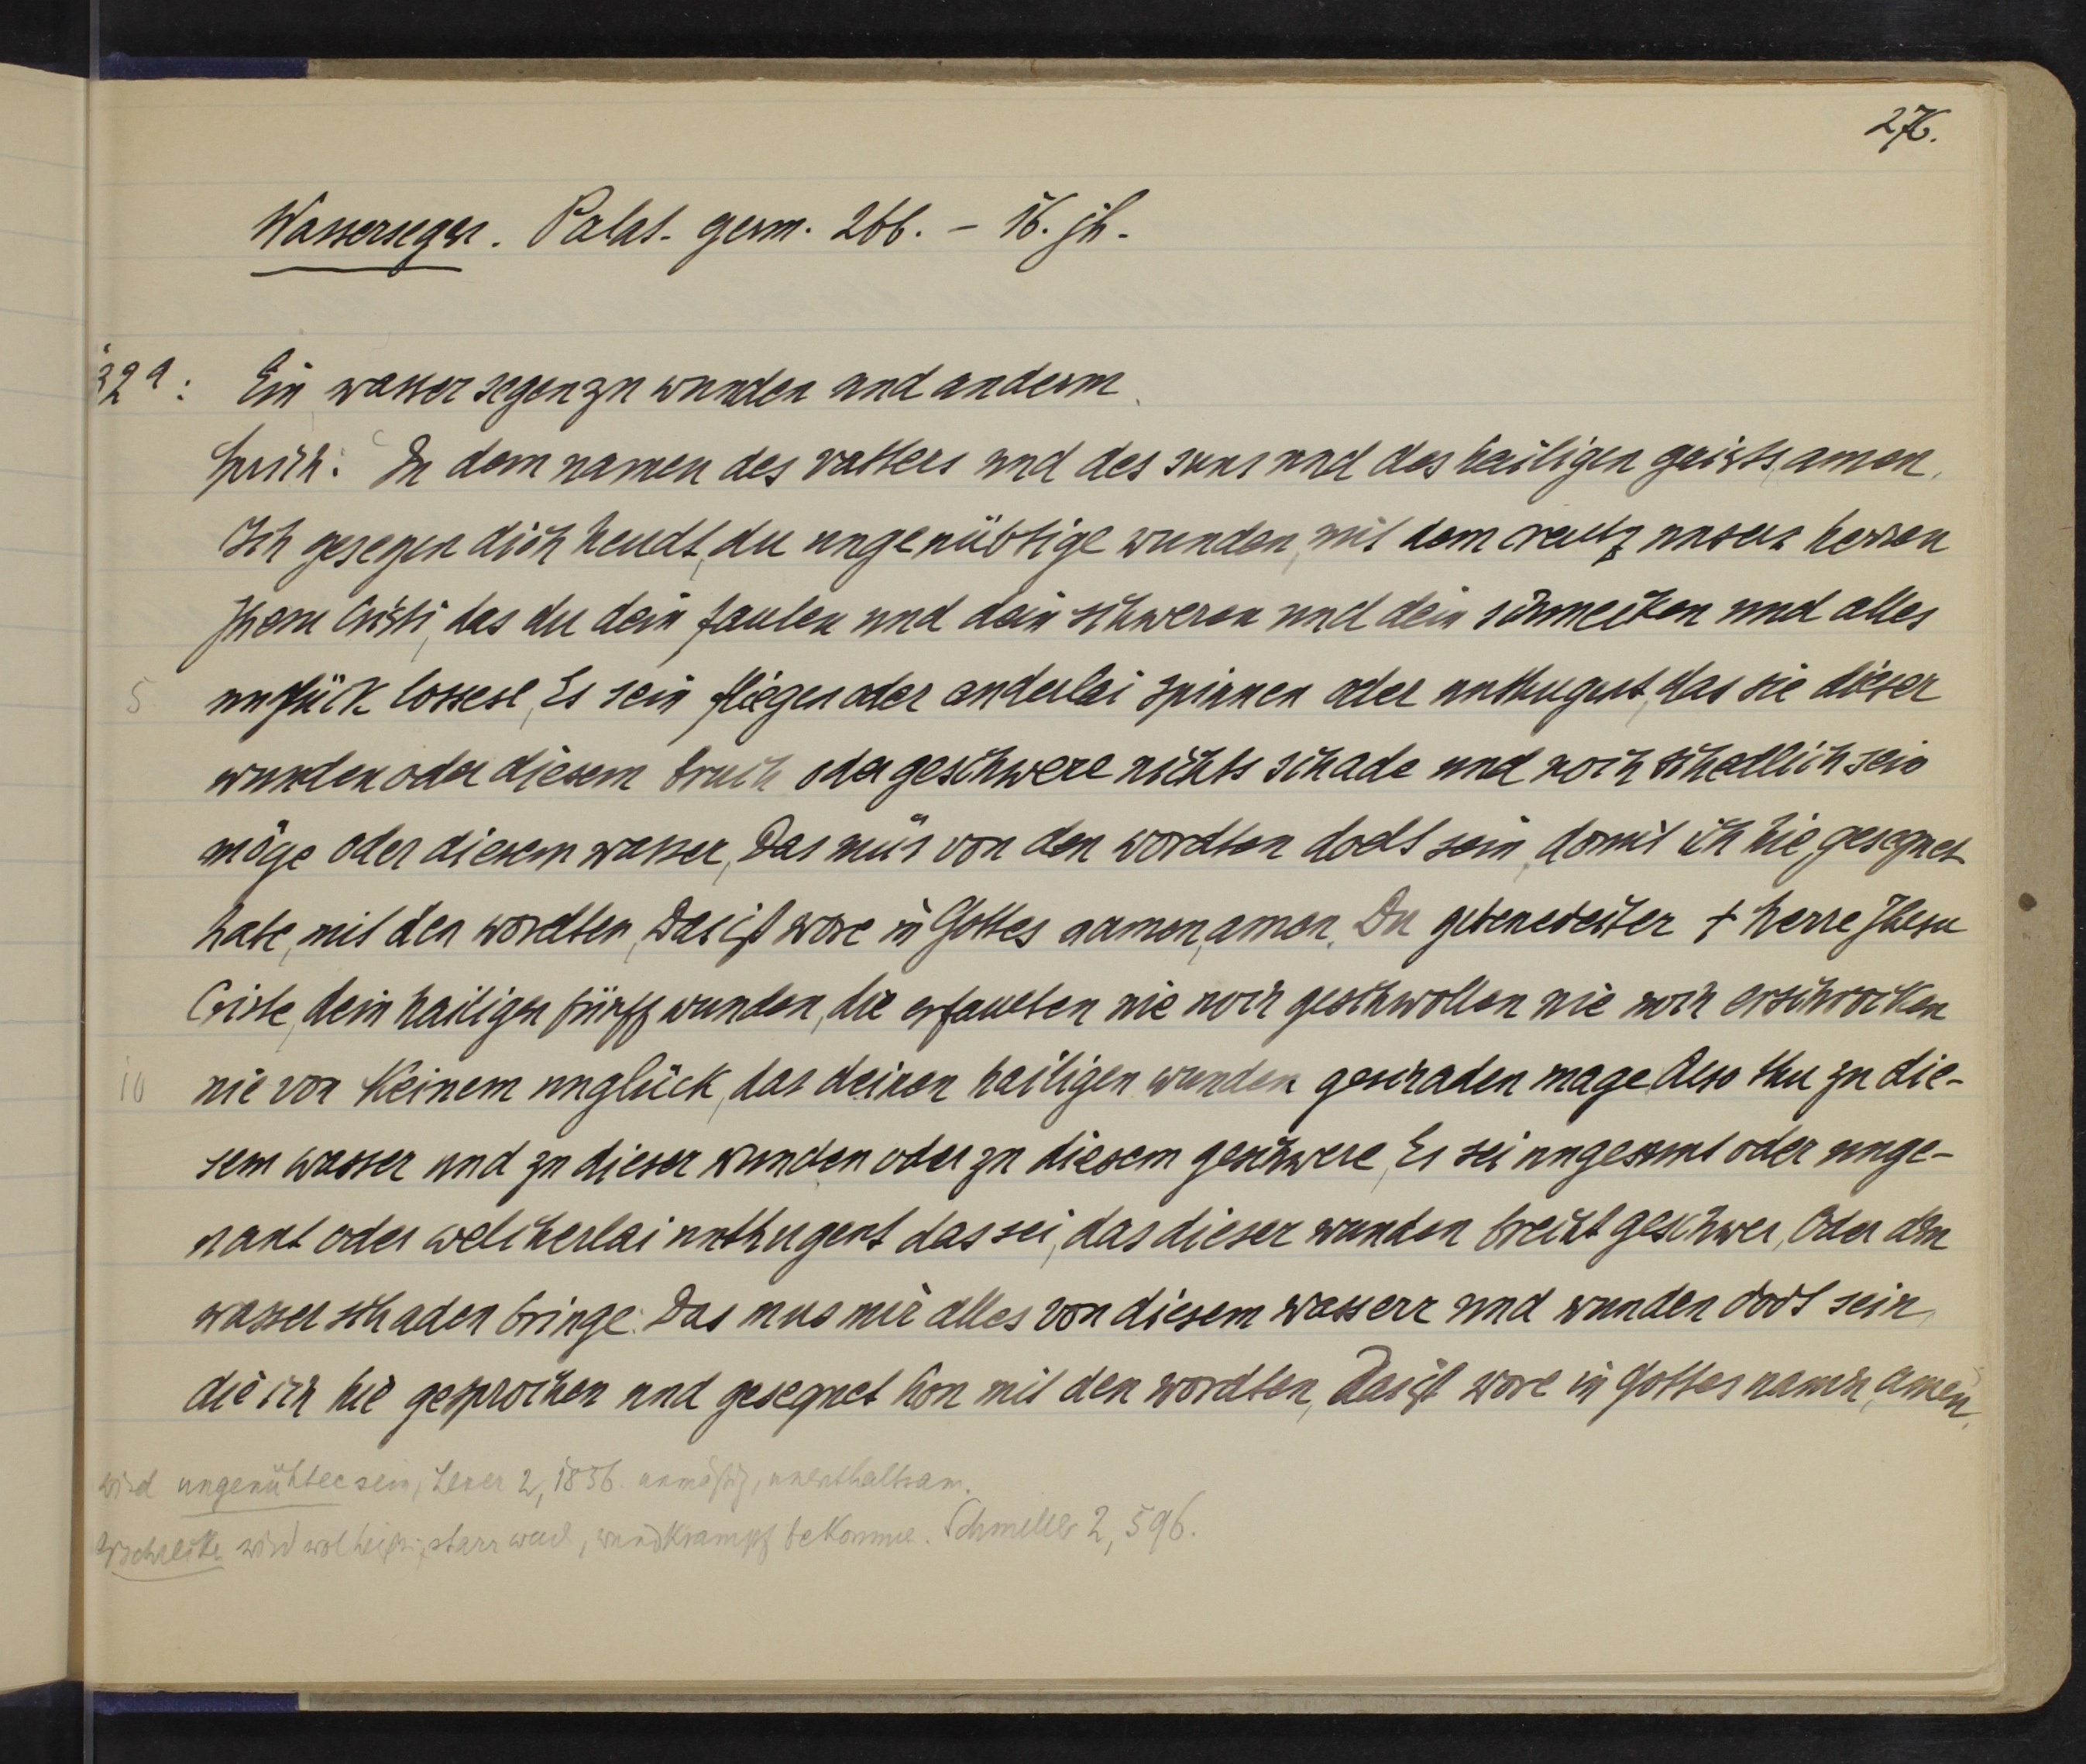 276.
Wassersegen. Palat. germ. 266. – 16. jh.
32a: Ein wasser segen zu wunden und anderm
Sprich: In dem namen des vatters und des suns und des heiligen geists, amen.
Ich gesegen dich heudt, du ungenübtige wunden, mit dem creutz unsers herren
Jhesu Cristi, das du dein faulen und dein schweren und dein schmecken und alles
unglück lossest, Es sein fliegen oder anderlei spinnen oder unthugent, das sie dieser
wunden oder diesem bruch oder geschwere nichts schade und noch schedlich sein
möge oder diesem wasser, Das müs von den wordten dodt sein, domit ich hie gesegnet
habe, mit den wordten, Das ist wore in Gottes namen, amen. Du gebenedeiter † herre Jhesu
Criste, dein hailigen fünff wunden, die erfaulten nie noch geschwollen nie noch erschrocken
nie von keinem unglück, das deinen hailigen wunden geschaden mage Also thu zu die-
sem wasser und zu dieser wunden oder zu diesem geschwere, Es sei ungesunt oder unge-
nant oder welcherlai unthugent das sei, das dieser wunden brecht geschwer, Oder dem
wasser schaden bringe. Das mus mir alles von diesem wasserr und wunden dodt sein,
die ich hie gesprochen und gesegnet hon mit den wordten, Das ist wore in Gottes namen, amen.
5
10
wird ungenühtec sein, Lexer 2, 1856. unmäßig, unenthaltsam.
erschrecken wird wol heißen, starr werd, wundkrampf bekomme. Schmeller 2, 596.